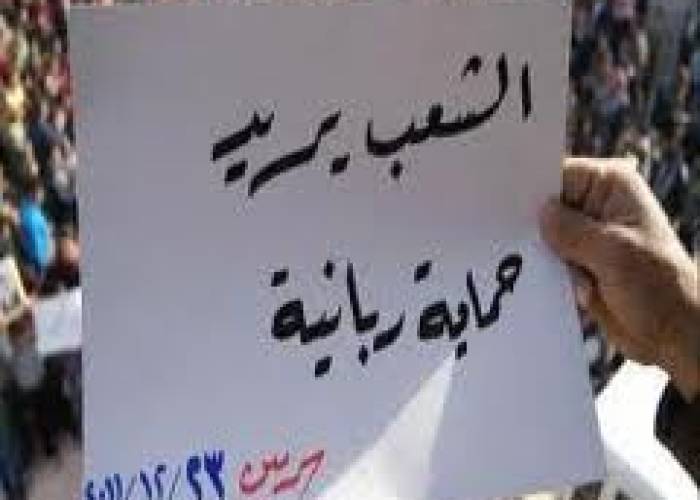 الشعب يريد
حماية ربانية
سرمين ٢٣/١٢/٢٠١١